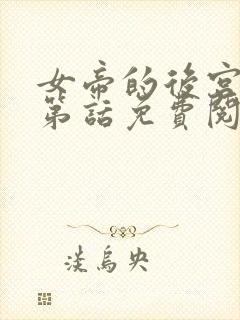 女帝的後宮
第話免費閱
淡烏央